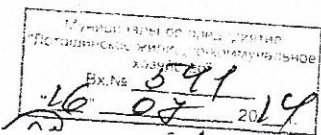 Муниципальное предприятие
"Лотошинское жилищно-коммунальное
хозяйство"
Вх.№ 541
"16" 07 2014